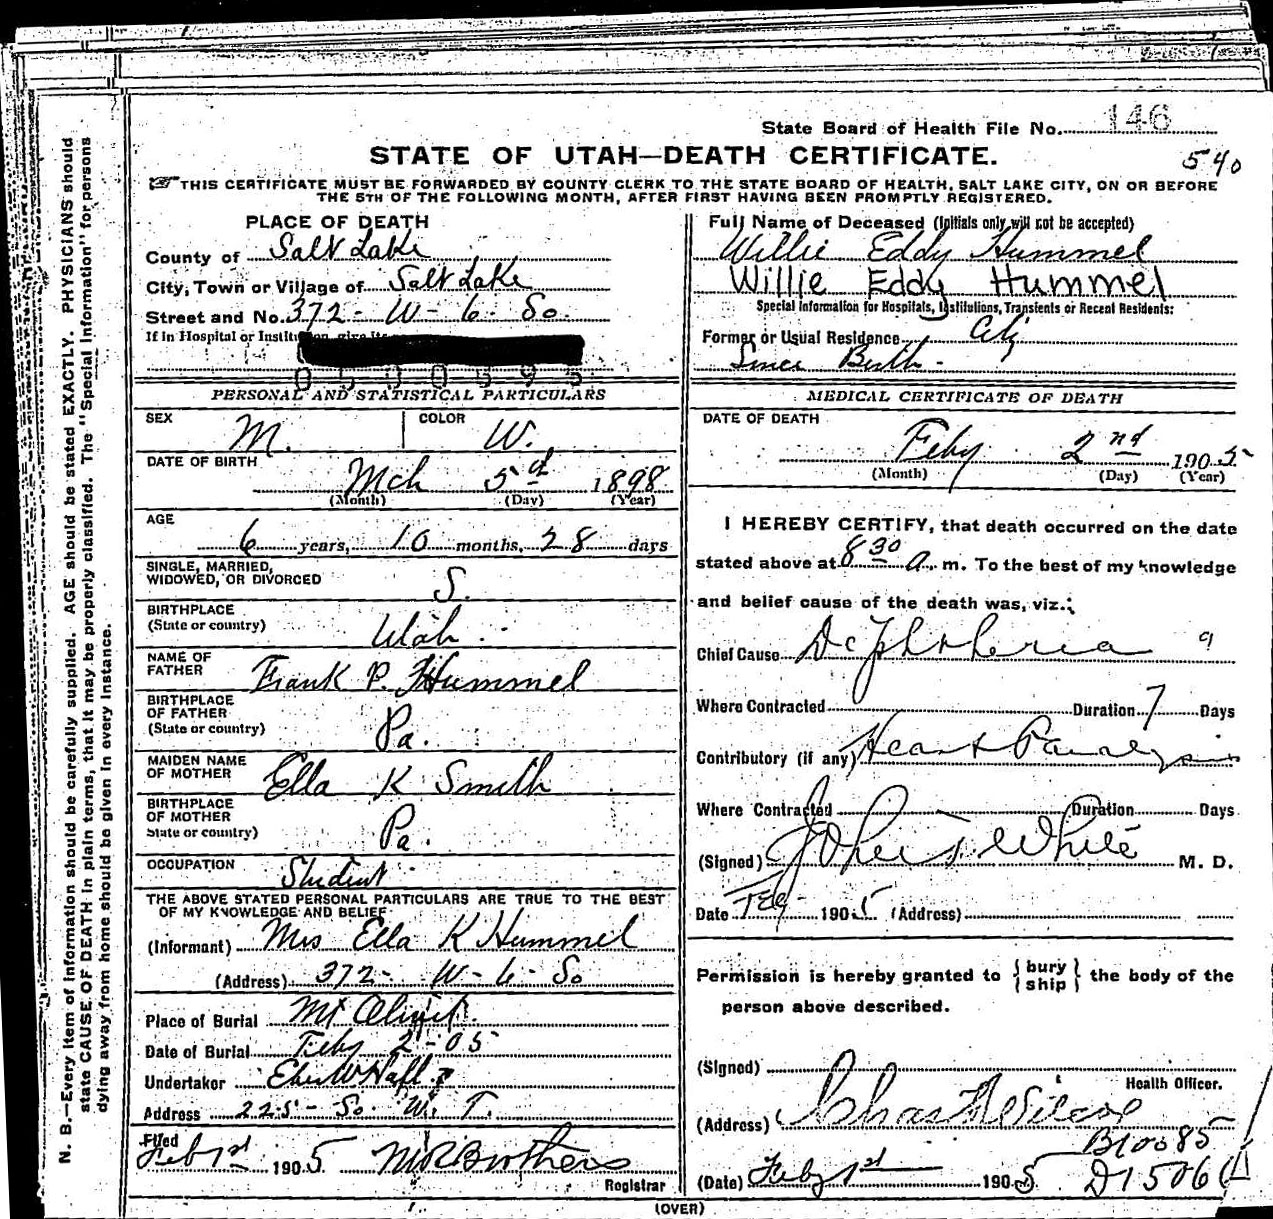 State Board of Health File No. 146
STATE OF UTAH—DEATH CERTIFICATE.
540
THIS CERTIFICATE MUST BE FORWARDED BY COUNTY CLERK TO THE STATE BOARD OF HEALTH, SALT LAKE CITY, ON OR BEFORE
THE 5TH OF THE FOLLOWING MONTH, AFTER FIRST HAVING BEEN PROMPTLY REGISTERED.
N. B.—Every item of information should be carefully supplied. AGE should be stated EXACTLY. PHYSICIANS should
state CAUSE OF DEATH in plain terms, that it may be properly classified. The "Special Information" for persons
dying away from home should be given in every instance.
PLACE OF DEATH
County of Salt Lake
City, Town or Village of Salt Lake
Street and No. 372 - W - 6 - So.
If in Hospital or
0500595
PERSONAL AND STATISTICAL PARTICULARS
SEX M. COLOR W.
DATE OF BIRTH
Mch 5th 1898
(Month) (Day) (Year)
AGE
6 years, 10 months, 28 days
SINGLE, MARRIED,
WIDOWED, OR DIVORCED S.
BIRTHPLACE
(State or country) Utah
NAME OF
FATHER Frank P. Hummel
BIRTHPLACE
OF FATHER
(State or country) Pa.
MAIDEN NAME
OF MOTHER Ella K Smith
BIRTHPLACE
OF MOTHER
State or country) Pa.
OCCUPATION Student
THE ABOVE STATED PERSONAL PARTICULARS ARE TRUE TO THE BEST
OF MY KNOWLEDGE AND BELIEF
(Informant) Mrs Ella K Hummel
(Address) 372 - W - 6 - So
Place of Burial Mt Olivet.
Date of Burial Feby 2 - 05
Undertaker Eber W Hall
Address 225 - So. W. T.
Filed
Feb 1905 M R Brothers
Registrar
Full Name of Deceased (Initials only will not be accepted)
Willie Eddy Hummel
Willie Eddy Hummel
Special Information for Hospitals, Institutions, Transients or Recent Residents:
Former or Usual Residence City
Since Birth -
MEDICAL CERTIFICATE OF DEATH
DATE OF DEATH
Feby 2nd 1905
(Month) (Day) (Year)
I HEREBY CERTIFY, that death occurred on the date
stated above at 8 30 a. m. To the best of my knowledge
and belief cause of the death was, viz.:
Chief Cause Diphtheria 9
Where Contracted Duration 7 Days
Contributory (if any) Heart Paralysis
Where Contracted Duration Days
(Signed) White M. D.
Date Feb 1905 (Address)
Permission is hereby granted to {bury ship} the body of the
person above described.
(Signed)
Health Officer.
(Address) Chas
B10085
(Date) Feby 1905 D1506
(OVER)